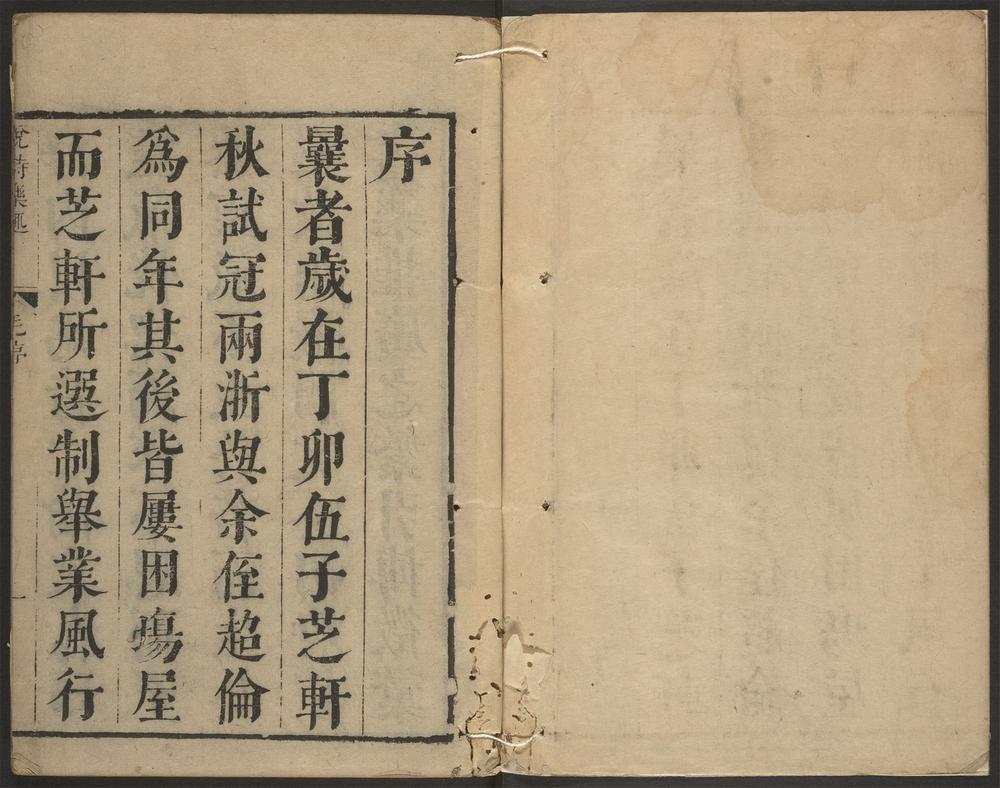 序
曩者歲在丁卯伍子芝軒
秋試冠兩浙與余侄超倫
爲同年其後皆屢困場屋
而芝軒所選制舉業風行
說詩樂趣